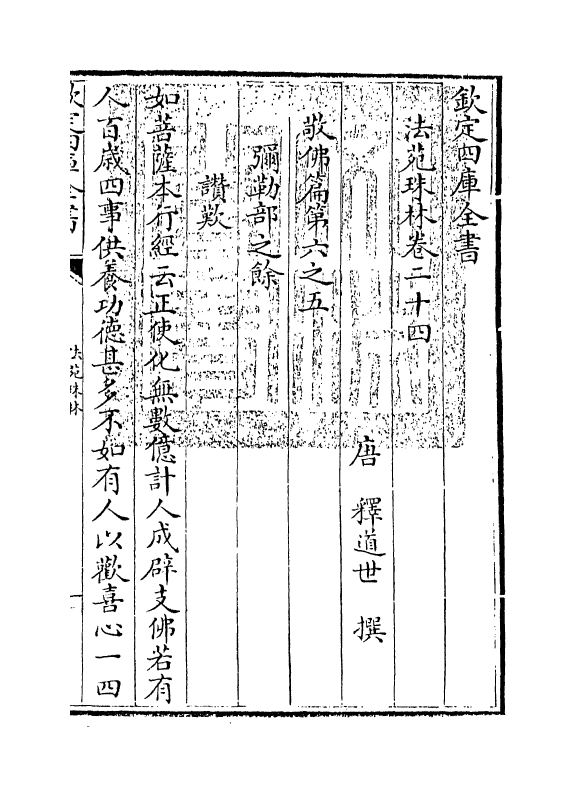 欽定四庫全書
法苑珠林卷二十四
唐 釋道世 撰
敬佛篇第六之五
彌勒部之餘
讃歎
如菩薩本行經云正使化無數億計人成辟支佛若有
人百歳四事供養功德甚多不如有人以歡喜心一四
欽定四庫全書
法苑珠林
一